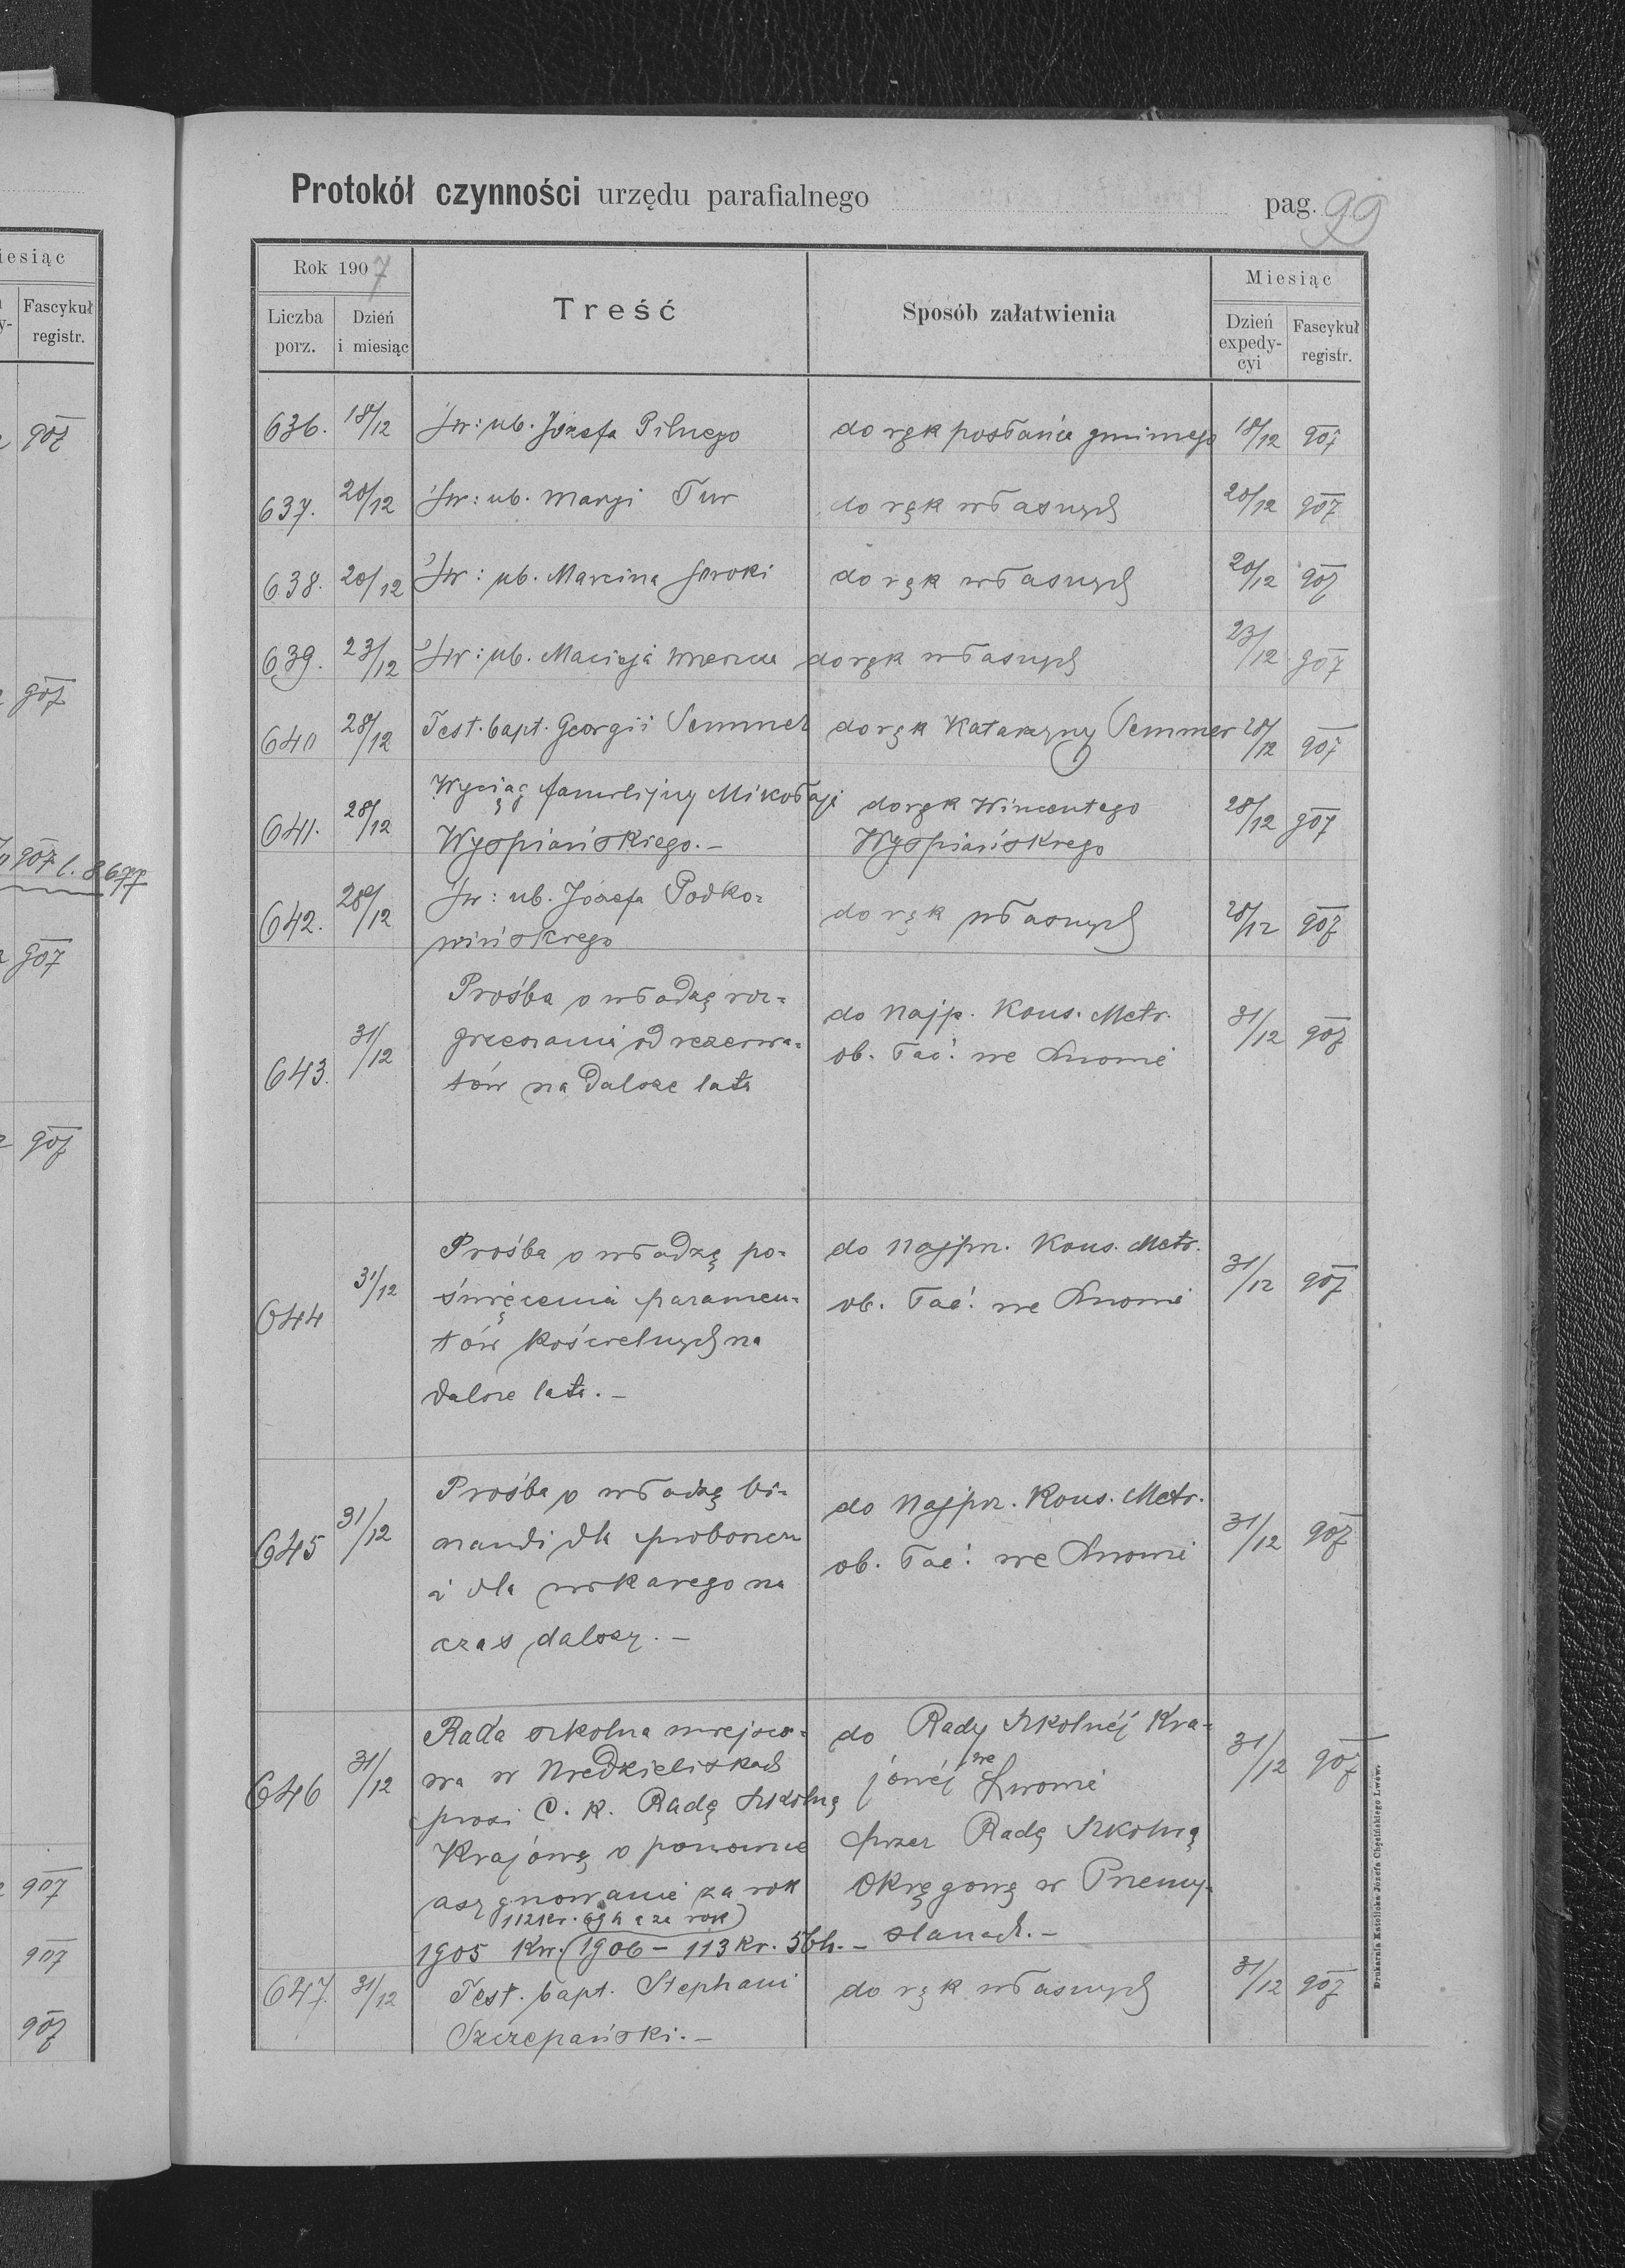 Protokół czynności urzędu parafialnego pag. 99
Rok 1907
Liczba porz.
Dzień i miesiąc
Treść
Sposób załatwienia
Miesiąc
Dzień expedy-cyi
Fascykuł registr.
636. 18/12 Św: ub. Józefa Pilnego do rąk posłańca gminnego 18/12 907
637. 20/12 Św: ub. Maryi Tur do rąk własnych 20/12 907
638. 20/12 Św: ub. Marcina Soroki do rąk własnych 20/12 907
639. 23/12 Św: ub. Macieja do rąk własnych 23/12 907
640 28/12 Test. bapt. Georgii Semmer do rąk Katarzyny Semmer 28/12 907
641. 28/12 Wyciąg familijny Mikołaja do rąk Wincentego 28/12 907
Wyspiańskiego.– Wyspiańskiego
642. 28/12 Św: ub. Józefa Podko= do rąk własnych 28/12 907
wińskiego
643. 31/12 Prośba o władzę roz= do Najp. Kons. Metr. 31/12 907
grzeszania od rezerwa= ob. łać: we Lwowie
tów na dalsze lata
644 31/12 Prośba o władzę po= do Najprz. Kons. Metr. 31/12 907
święcenia paramen= ob. łać: we Lwowie
tów kościelnych na
dalsze lata.–
645 31/12 Prośba o władzę bi= do Najprz. Kons. Metr. 31/12 907
nandi dla proboszcza ob. łać: we Lwowie
i dla wikarego na
czas dalszy.–
646 31/12 Rada szkolna miejsco= do Rady Szkolnéj Kra= 31/12 907
wa w Niedzieliskach jowéj we Lwowie
prosi C. K. Radę Szkolną przez Radę Szkolną
Krajową o ponowne Okręgową w Przemy=
asygnowanie za rok ślanach.–
112kr. 69h a za rok
1905 Kw. (1906 – 113 Kr. 56h.–
647. 31/12 Test. bapt. Stephani do rąk własnych 31/12 907
Szczepański.–
Drukarnia Katolicka Józefa Chęcińskiego Lwów.
iesiąc
Fascykuł
registr.
907
907
907 l. 8677
907
907
907
907
907